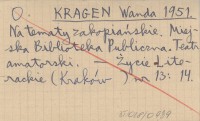 O. KRAGEN Wanda 1951.
Na tematy zakopiańskie. Miej-
ska Biblioteka Publiczna. Teatr
amatorski. — Życie Lite-
rackie (Kraków) nr 13: 14.